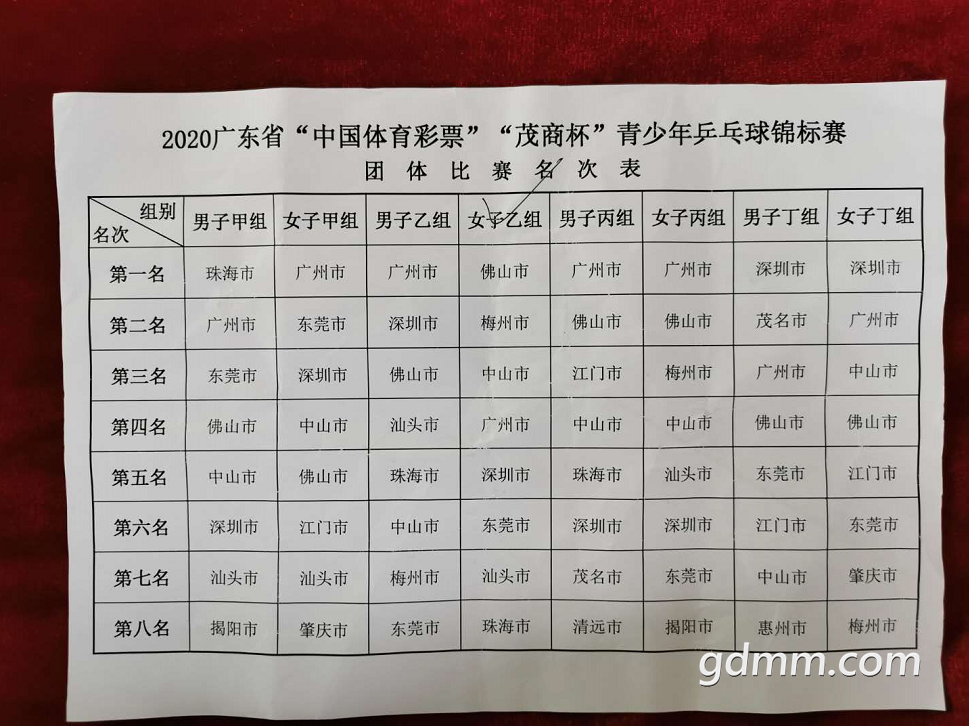 2020广东省“中国体育彩票”“茂商杯”青少年乒乓球锦标赛
团体比赛名次表
组别 名次 男子甲组 女子甲组 男子乙组 女子乙组 男子丙组 女子丙组 男子丁组 女子丁组
第一名 珠海市 广州市 广州市 佛山市 广州市 广州市 深圳市 深圳市
第二名 广州市 东莞市 深圳市 梅州市 佛山市 佛山市 茂名市 广州市
第三名 东莞市 深圳市 佛山市 中山市 江门市 梅州市 广州市 中山市
第四名 佛山市 中山市 汕头市 广州市 中山市 中山市 佛山市 佛山市
第五名 中山市 佛山市 珠海市 深圳市 珠海市 汕头市 东莞市 江门市
第六名 深圳市 江门市 中山市 东莞市 深圳市 深圳市 江门市 东莞市
第七名 汕头市 汕头市 梅州市 汕头市 茂名市 东莞市 中山市 肇庆市
第八名 揭阳市 肇庆市 东莞市 珠海市 清远市 揭阳市 惠州市 梅州市
gdmm.com